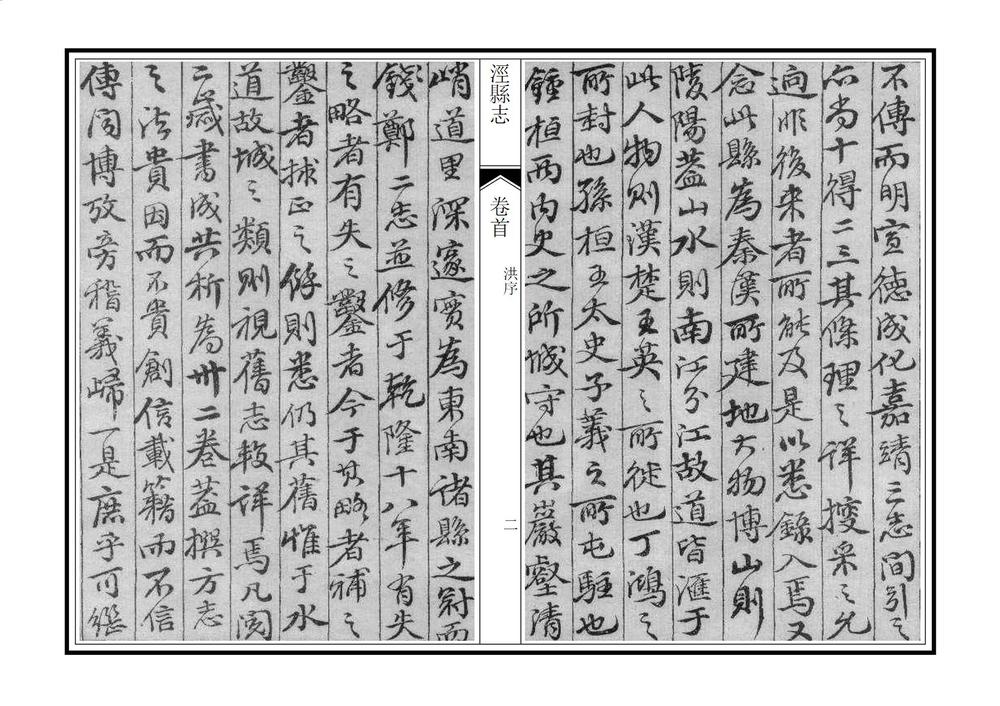 不傳而明宣德成化嘉靖三志間引之
亦尚十得二三其條理之詳搜采之允
迥非後来者所能及是以悉錄入焉又
念此縣為秦漢所建地大物博山則
陵陽蓋山水則南江分江故道皆滙于
此人物則漢楚王英之所徙也丁鴻之
所封也孫桓王太史子義之所屯駐也
鍾桓兩內史之所城守也其巖壑清
峭道里深邃實為東南諸縣之冠而
錢鄭二志並修于乾隆十八年有失
之略者有失之鑿者今于其略者補之
鑿者捄正之餘則悉仍其舊惟于水
道故城之類則視舊志較詳焉凡閱
二歲書成共析為卅二卷蓋撰方志
之法貴因而不貴創信載籍而不信
傳聞博攷旁稽義歸一是庶乎可繼
涇縣志
卷首
洪序
二